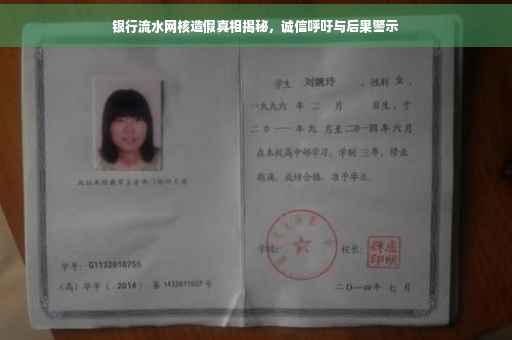 银行流水网核造假真相揭秘，诚信呼吁与后果警示
学生 刘婉玲 ，性别 女 ，
一九九六 年 二 月 日生，于
二〇一一年九 月至二〇一四年 六月
在本校高中部学习，学制 三年，修业
期满，成绩合格，准予毕业。
学校： 校长：
学号：G1132010755
（高）毕字（ 2014 ）第 1432011037 号
二〇一四年 七 月